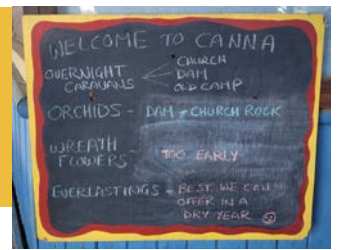 WELCOME TO CANNA
OVERNIGHT CARAVANS
CHURCH
DAM
OLD CAMP
ORCHIDS - DAM + CHURCH ROCK
WREATH - FLOWERS
TOO EARLY
EVERLASTINGS - BEST WE CAN
OFFER IN A
DRY YEAR